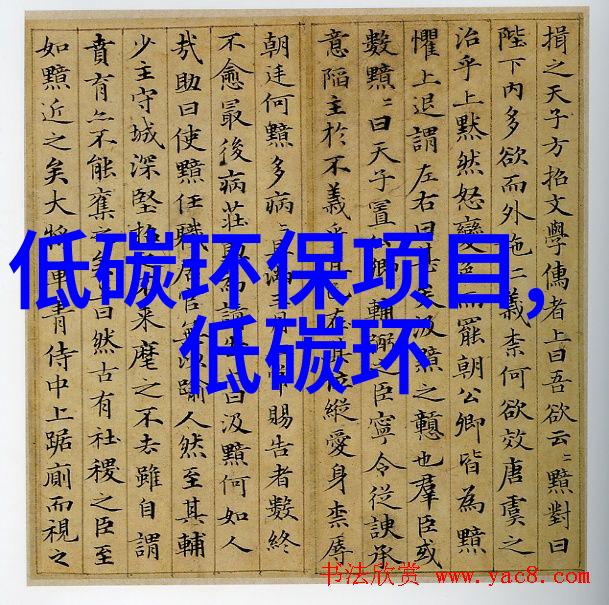 低碳环保项目,
低碳环
損之天子方招文學儒者上曰吾欲云〻黯對曰
陛下內多欲而外施仁義柰何欲效唐虞之
治乎上默然怒變色而罷朝公卿皆為黯
懼上退謂左右曰甚矣汲黯之戇也羣臣或
數黯〻曰天子置公卿輔弼之臣寧令從諛承
意陷主於不義乎且已在其位縱愛身柰辱
朝廷何黯多病〻且滿三月賜告者數終
不愈最後病莊助為請告曰汲黯何如人
㢤助曰使黯任職居官無以踰人然至其輔
少主守城深堅招來麾之不去雖自謂
賁育亦不能奪之矣曰然古有社稷之臣至
如黯近之矣大將軍青侍中上踞廁而視之
书法欣赏 www.yac8.com